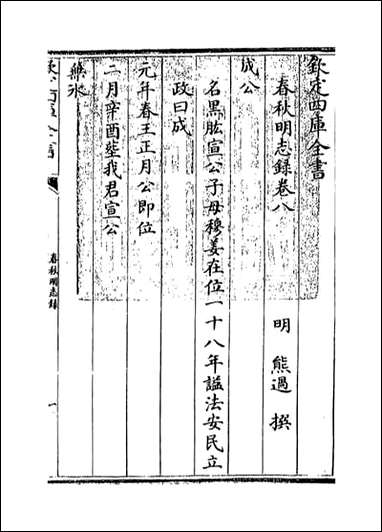 欽定四庫全書
春秋明志録卷八
明 熊過 撰
成公
名黒肱宣公子母穆姜在位一十八年諡法安民立
政曰成
元年春王正月公即位
二月辛酉塟我君宣公
無氷
欽定四庫全書
春秋明志録
一